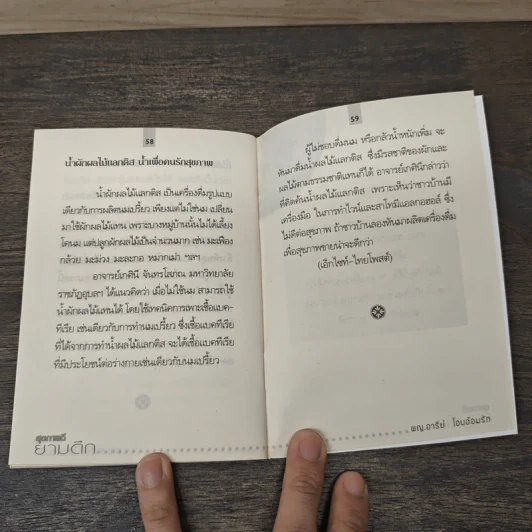 58
น้ำผักผลไม้แลกติส น้ำเพื่อคนรักสุขภาพ
น้ำผักผลไม้แลกติส เป็นเครื่องดื่มรูปแบบ
เดียวกับการผลิตนมเปรี้ยว เพียงแต่ไม่ใช่นม เปลี่ยน
มาใช้ผักผลไม้แทน เพราะบางหมู่บ้านนั้นไม่ได้เลี้ยง
โคนม แต่ปลูกผักผลไม้เป็นจำนวนมาก เช่น มะเฟือง
กล้วย มะม่วง มะละกอ หมากเม่า ฯลฯ
อาจารย์เกศินี จันทรโสภณ มหาวิทยาลัย
ราชภัฏอุบลฯ ได้แนวคิดว่า เมื่อไม่ใช้นม สามารถใช้
น้ำผักผลไม้แทนได้ โดยใช้เทคนิคการเพาะเชื้อแบค-
ทีเรีย เช่นเดียวกับการทำนมเปรี้ยว ซึ่งเชื้อแบคทีเรีย
ที่ได้จากการทำน้ำผลไม้แลกติส จะได้เชื้อแบคทีเรีย
ที่มีประโยชน์ต่อร่างกายเช่นเดียวกับนมเปรี้ยว
สุขภาพดี
ยามดึก
59
ผู้ไม่ชอบดื่มนม หรือกลัวน้ำหนักเพิ่ม จะ
หันมาดื่มน้ำผลไม้แลกติส ซึ่งมีรสชาติของผักและ
ผลไม้ตามธรรมชาติแทนก็ได้ อาจารย์เกศินีกล่าวว่า
ที่คิดค้นน้ำผลไม้แลกติส เพราะเห็นว่าชาวบ้านมี
เครื่องมือ ในการทำไวน์และสาโทมีแอลกอฮอล์ ซึ่ง
ไม่ดีต่อสุขภาพ ถ้าชาวบ้านลองหันมาผลิตเครื่องดื่ม
เพื่อสุขภาพขายน่าจะดีกว่า
(เอ็กไซท์-ไทยโพสต์)
พญ.อารีย์ โอบอ้อมรัก